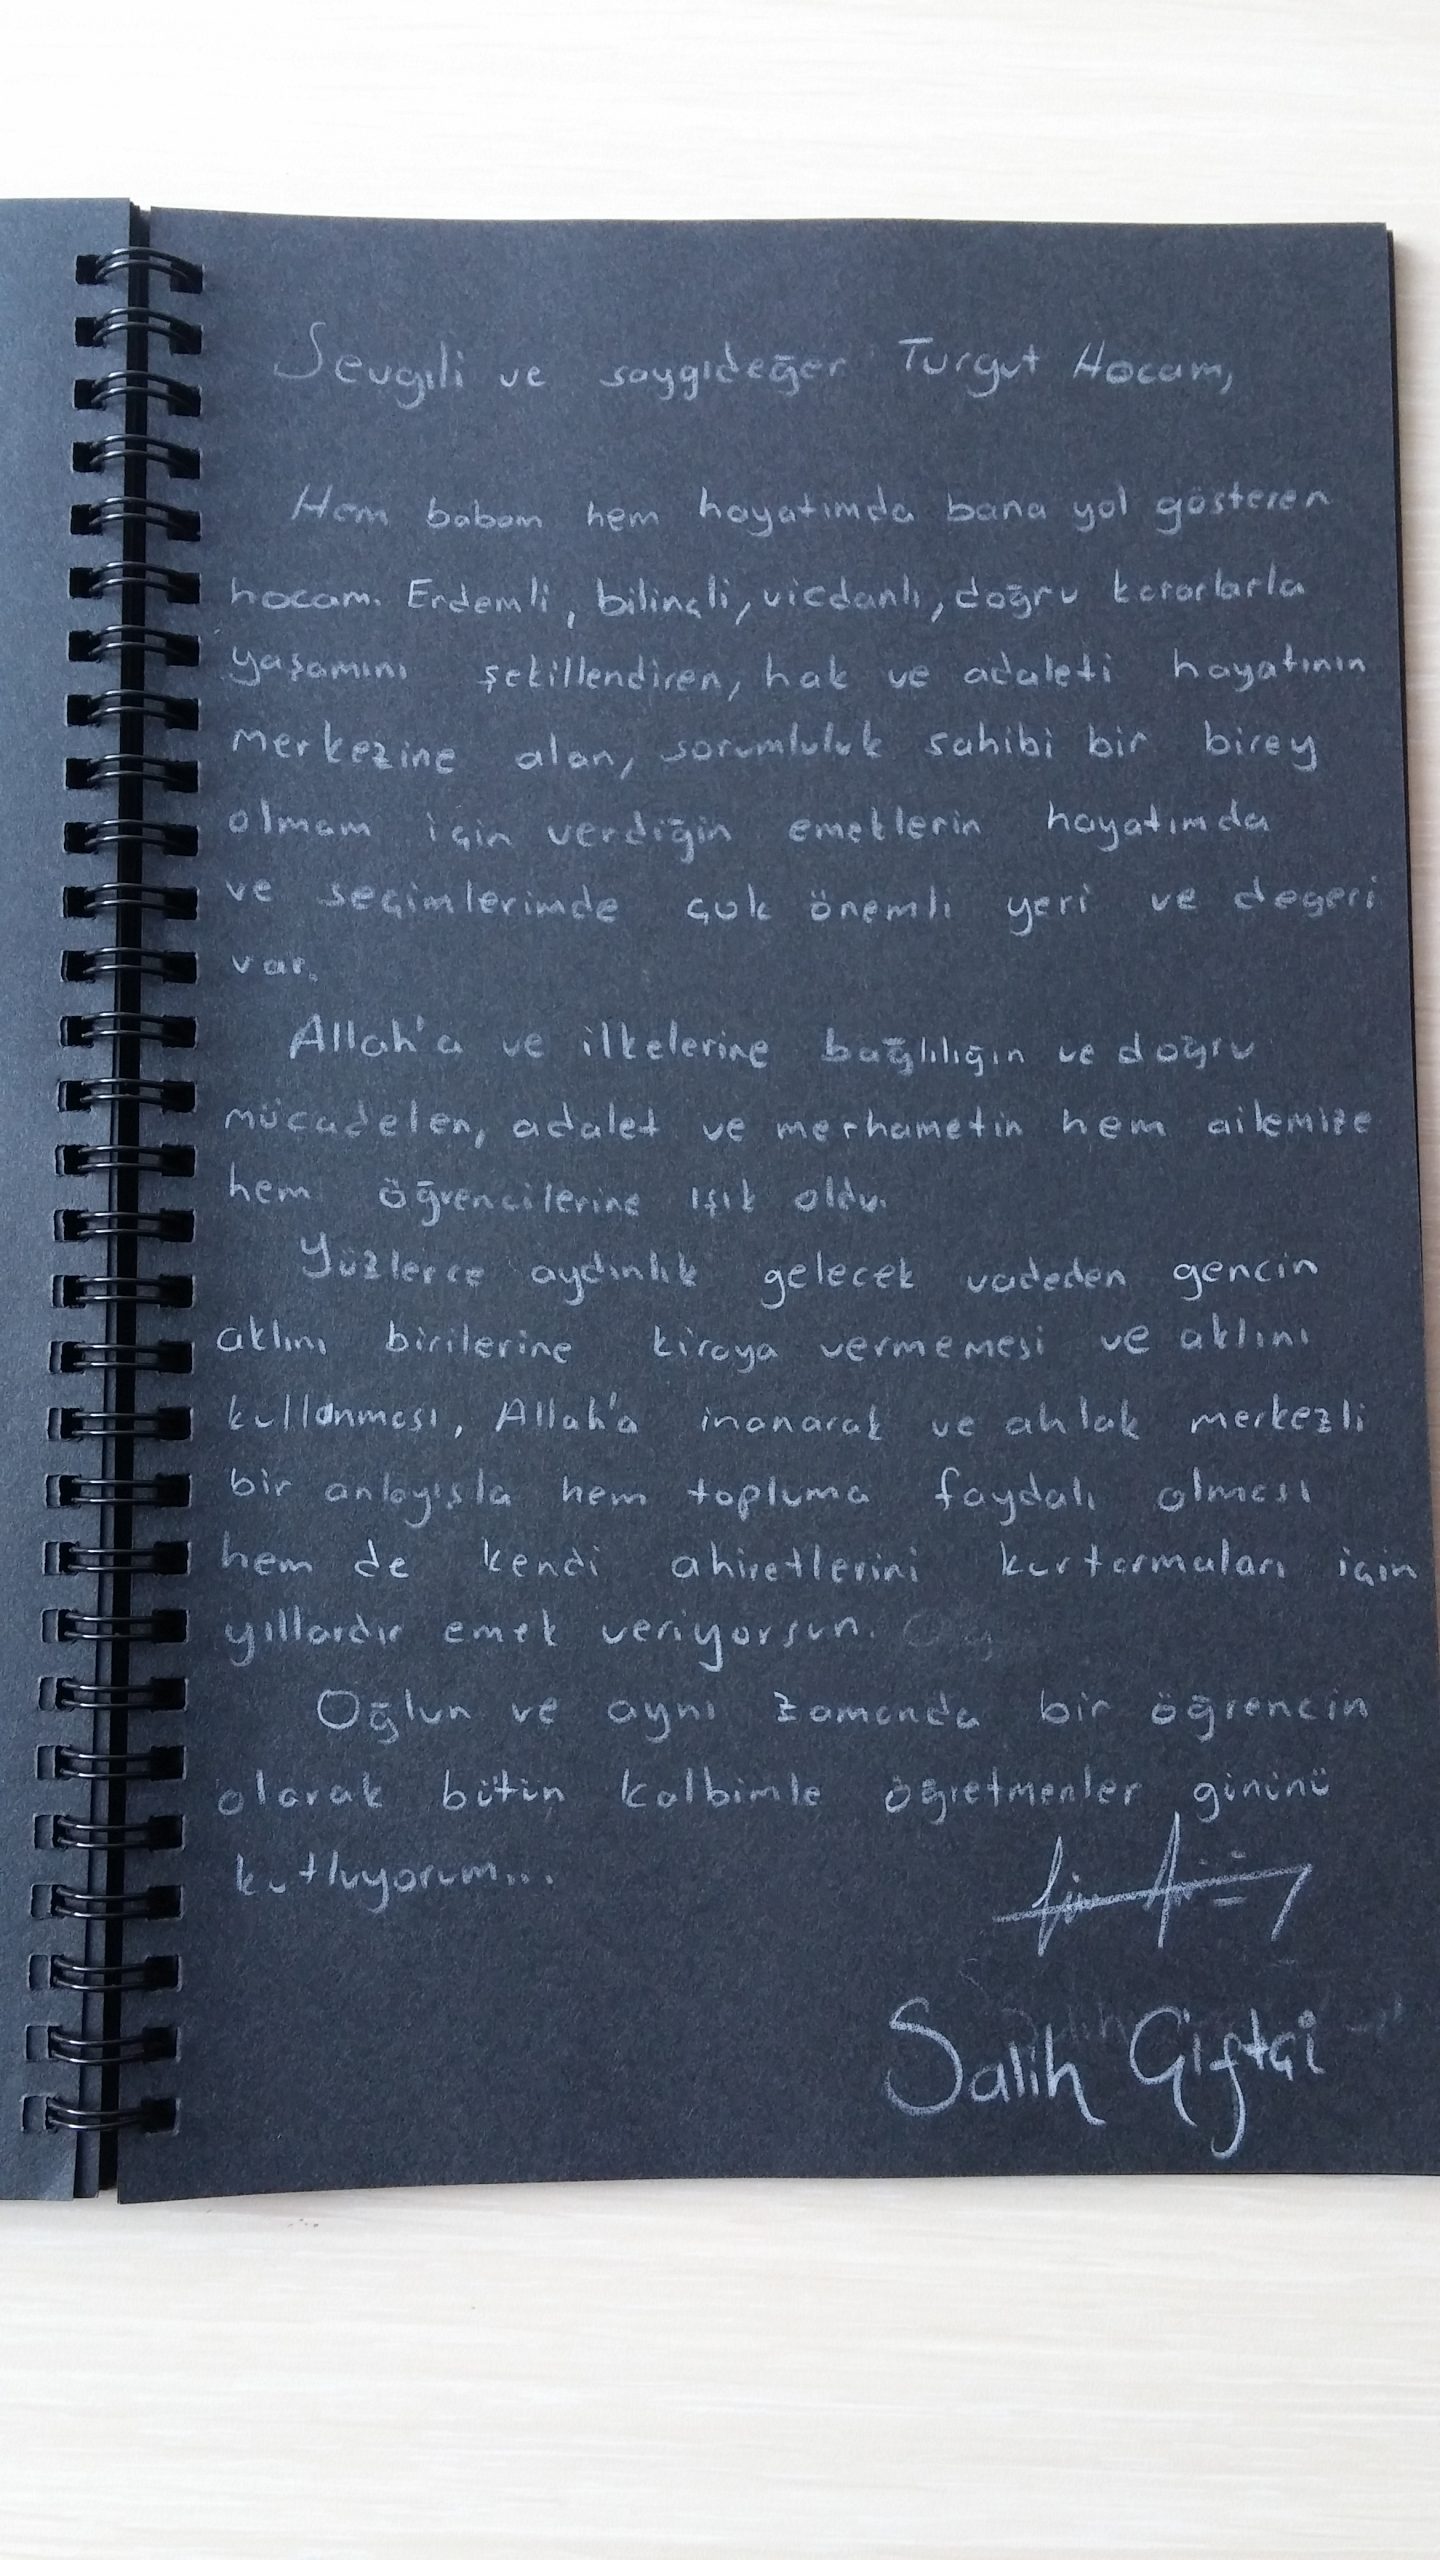 Sevgili ve saygıdeğer Turgut Hocam,
Hem babam hem hayatımda bana yol gösteren
hocam. Erdemli, bilinçli, vicdanlı, doğru kararlarla
yaşamını şekillendiren, hak ve adaleti hayatının
merkezine alan, sorumluluk sahibi bir birey
olmam için verdiğin emeklerin hayatımda
ve seçimlerimde çok önemli yeri ve degeri
var.
Allah'a ve ilkelerine bağlılığın ve doğru
mücadelen, adalet ve merhametin hem ailemize
hem öğrencilerine ışık oldu.
Yüzlerce aydınlık gelecek vadeden gencin
aklını birilerine kiraya vermemesi ve aklını
kullanması, Allah'a inanarak ve ahlak merkezli
bir anlayışla hem topluma faydalı olması
hem de kendi ahiretlerini kurtarmaları için
yıllardır emek veriyorsun.
Oğlun ve aynı zamanda bir öğrencin
olarak bütün kalbimle öğretmenler gününü
kutluyorum...
Salih Çiftçi